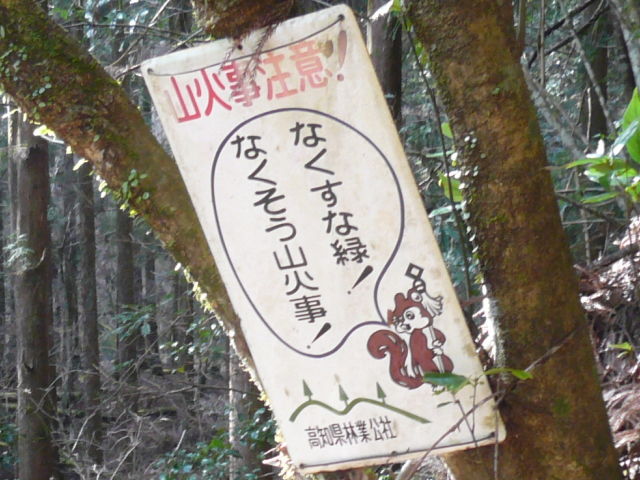 山火事注意!
なくすな緑!
なくそう山火事!
高知県林業公社